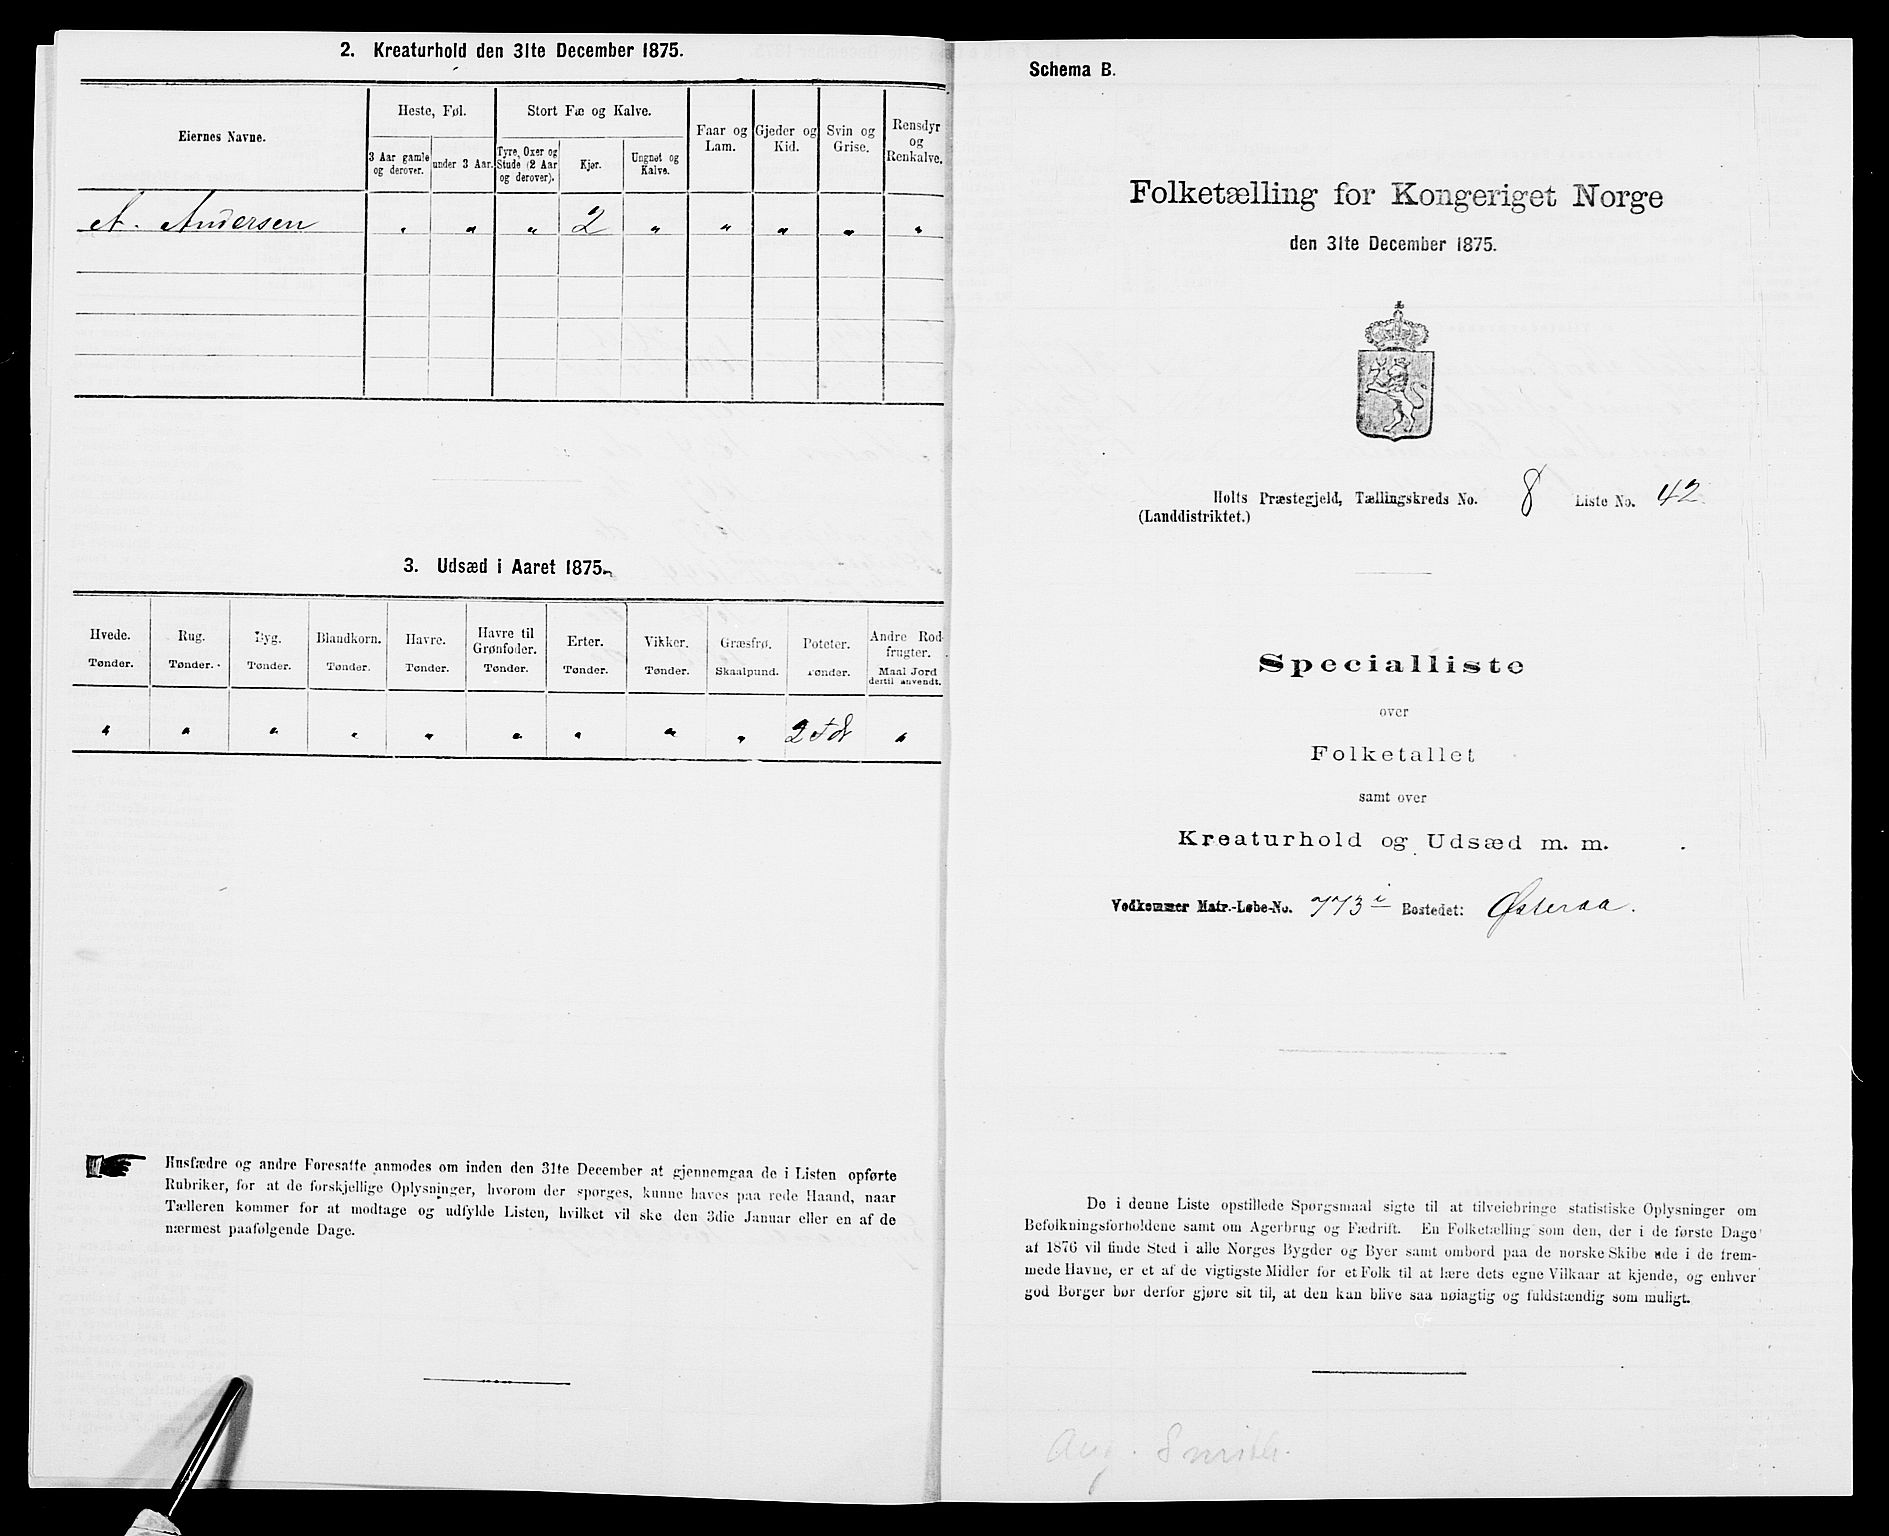 2. Kreaturhold den 31te December 1875.
Eiernes Navne.
Heste, Føl.
Stort Fæ og Kalve.
Faar og Lam.
Gjeder og Kid.
Svin og Grise.
Rensdyr og Renkalve.
3 Aar gamle og derover.
under 3 Aar.
Tyre, Oxer og Stude (2 Aar og derover).
Kjør.
Ungnøt og Kalve.
A. Andersen " " " 2 " " " " "
3. Udsæd i Aaret 1875.
Hvede. Rug. Byg. Blandkorn. Havre. Havre til Grønfoder. Erter. Vikker. Græsfrø. Poteter. Andre Rodfrugter.
Tønder. Tønder. Tønder. Tønder. Tønder. Tønder. Tønder. Tønder. Skaalpund. Tønder. Maal Jord dertil anvendt.
" " " " " " " " " 2 Tdr "
Husfædre og andre Foresatte anmodes om inden den 31te December at gjennemgaa de i Listen opførte
Rubriker, for at de forskjellige Oplysninger, hvorom der spørges, kunne haves paa rede Haand, naar
Tælleren kommer for at modtage og udfylde Listen, hvilket vil ske den 3die Januar eller en af de
nærmest paafølgende Dage.
Schema B.
Folketælling for Kongeriget Norge
den 31te December 1875.
Holts Præstegjeld, Tællingskreds No. 8 Liste No. 42
(Landdistriktet.)
Specialliste
over
Folketallet
samt over
Kreaturhold og Udsæd m. m.
Vedkommer Matr.-Løbe-No. 773 i Bostedet: Østeraa.
De i denne Liste opstillede Spørgsmaal sigte til at tilveiebringe statistiske Oplysninger om
Befolkningsforholdene samt om Agerbrug og Fædrift. En Folketælling som den, der i de første Dage
af 1876 vil finde Sted i alle Norges Bygder og Byer samt ombord paa de norske Skibe ude i de frem-
mede Havne, er et af de vigtigste Midler for et Folk til at lære dets egne Vilkaar at kjende, og enhver
god Borger bør derfor gjøre sit til, at den kan blive saa nøiagtig og fuldstændig som muligt.
Aug. Smith.